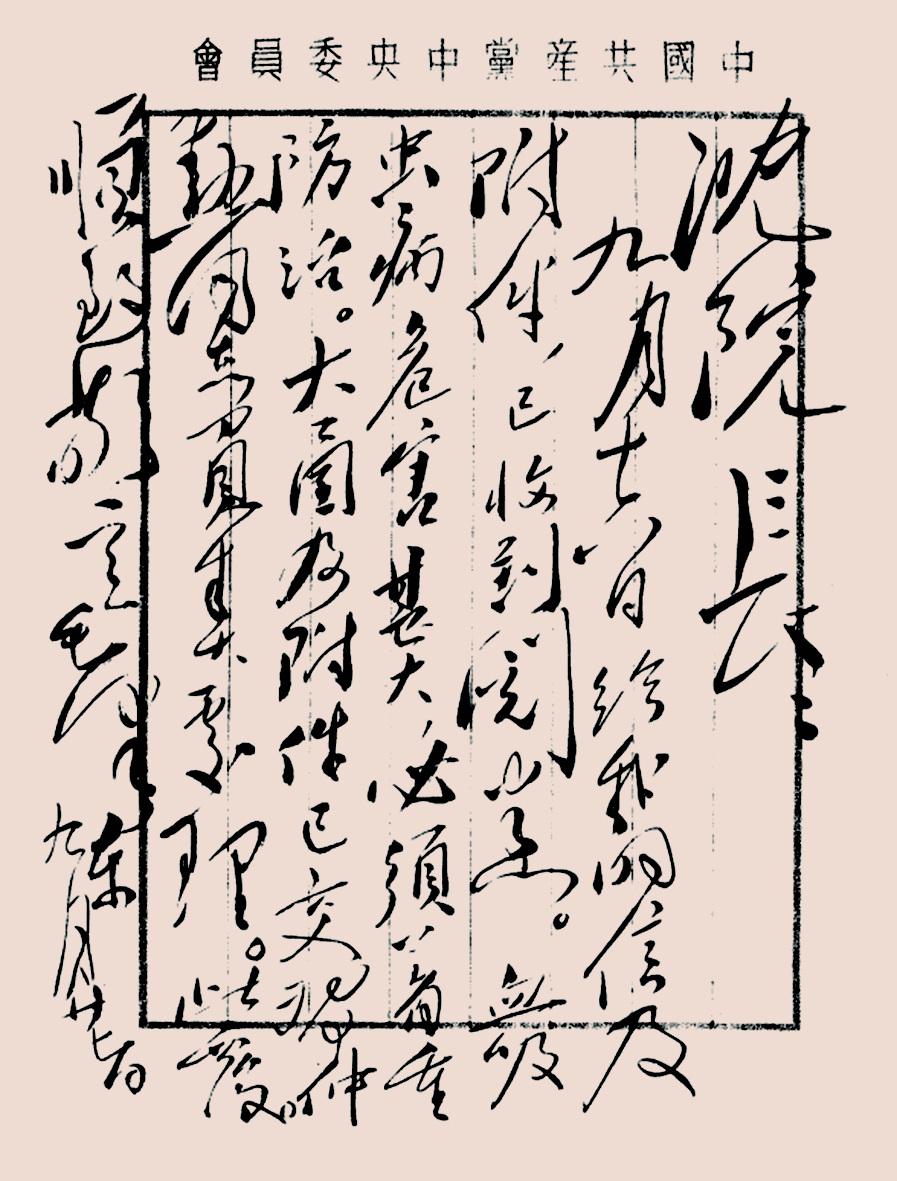 中國共産黨中央委員會
沈院長：
九月十六日给我的信及
附件，已收到閲悉。血吸
虫病危害甚大，必須着重
防治。大函及附件已交習仲
勳同志負責处理。此覆。
順致敬意
毛澤東
九月廿七日